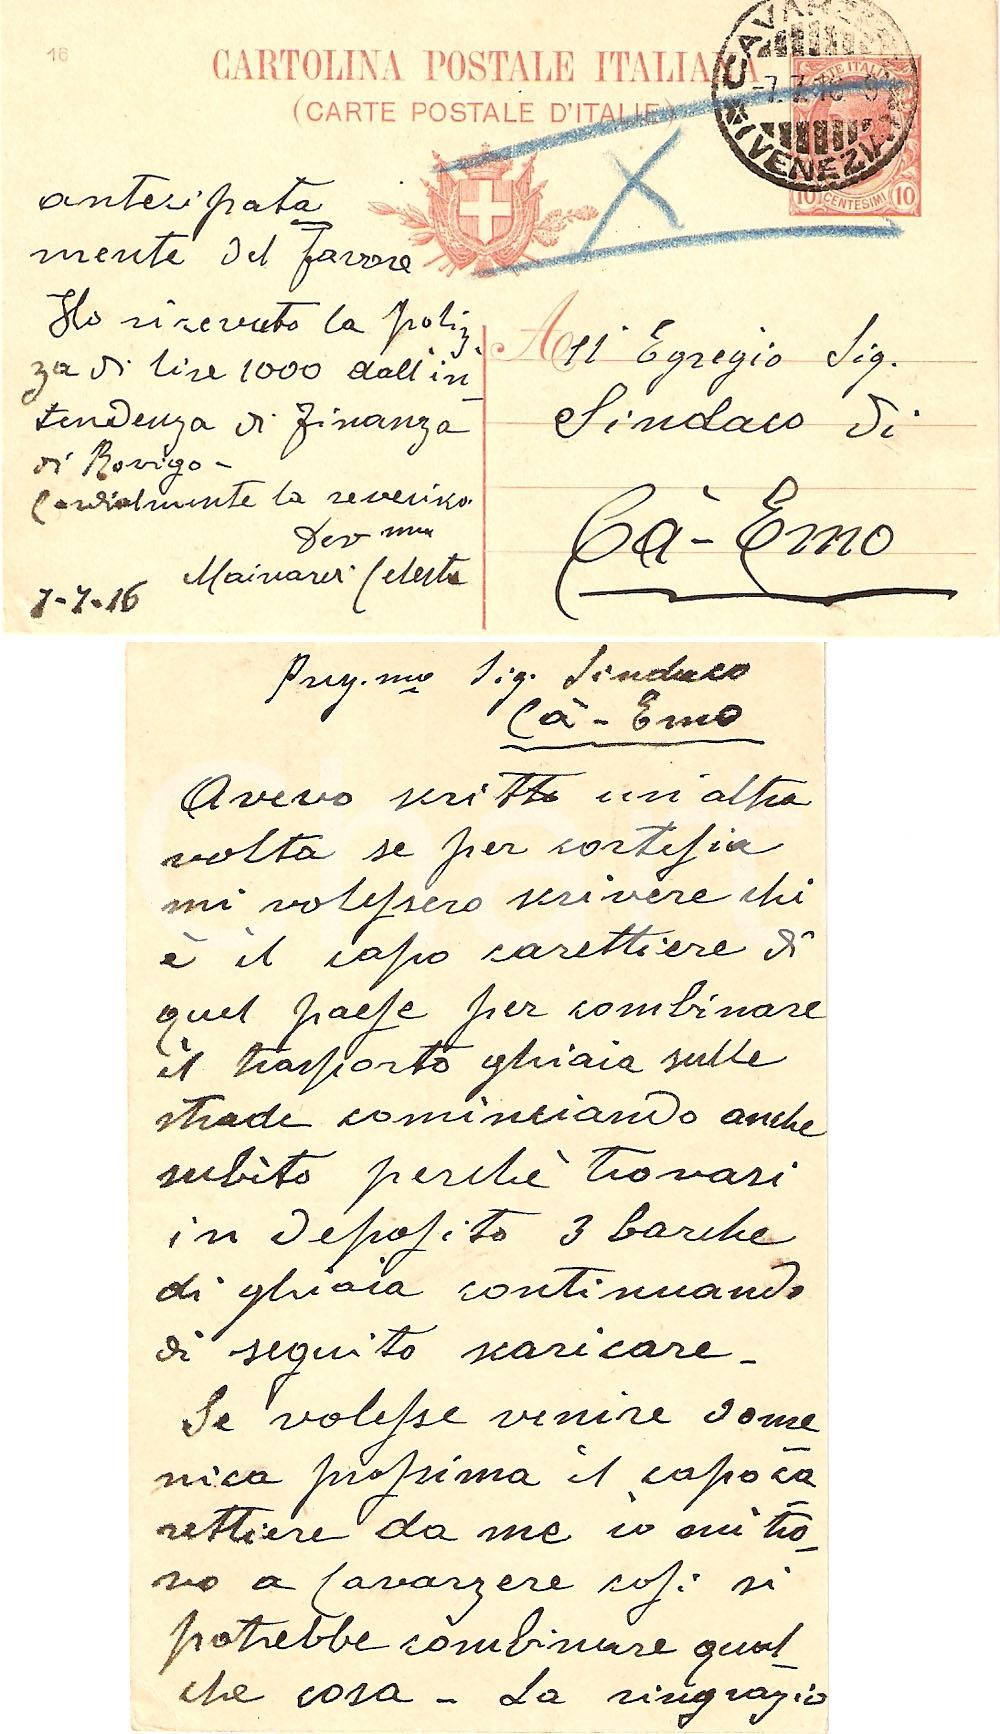 16
CARTOLINA POSTALE ITALIANA
(CARTE POSTALE D'ITALIE)
CAVARZERE
-7.7.16
(VENEZIA)
10 CENTESIMI 10
antecipata
mente del favore
Ho ricevuto la poliz
za di lire 1000 dall'in
tendenza di finanza
di Rovigo -
Cordialmente la reverisco
Dev mo
Mainardi Celeste
7-7-16
All Egregio Sig.
Sindaco di
Cà - Emo
Preg.mo Sig. Sindaco
Cà - Emo
Avevo scritto un'altra
volta se per cortesia
mi volessero scrivere chi
è il capo carettiere di
quel paese per combinare
il trasporto ghiaia sulle
strade cominciando anche
subito perchè trovasi
in deposito 3 barche
di ghiaia continuando
di seguito scaricare -
Se volesse venire dome
nica prossima il capo ca
rettiere da me io mi tro
vo a Cavarzere così si
potrebbe combinare qual
che cosa - La ringrazio